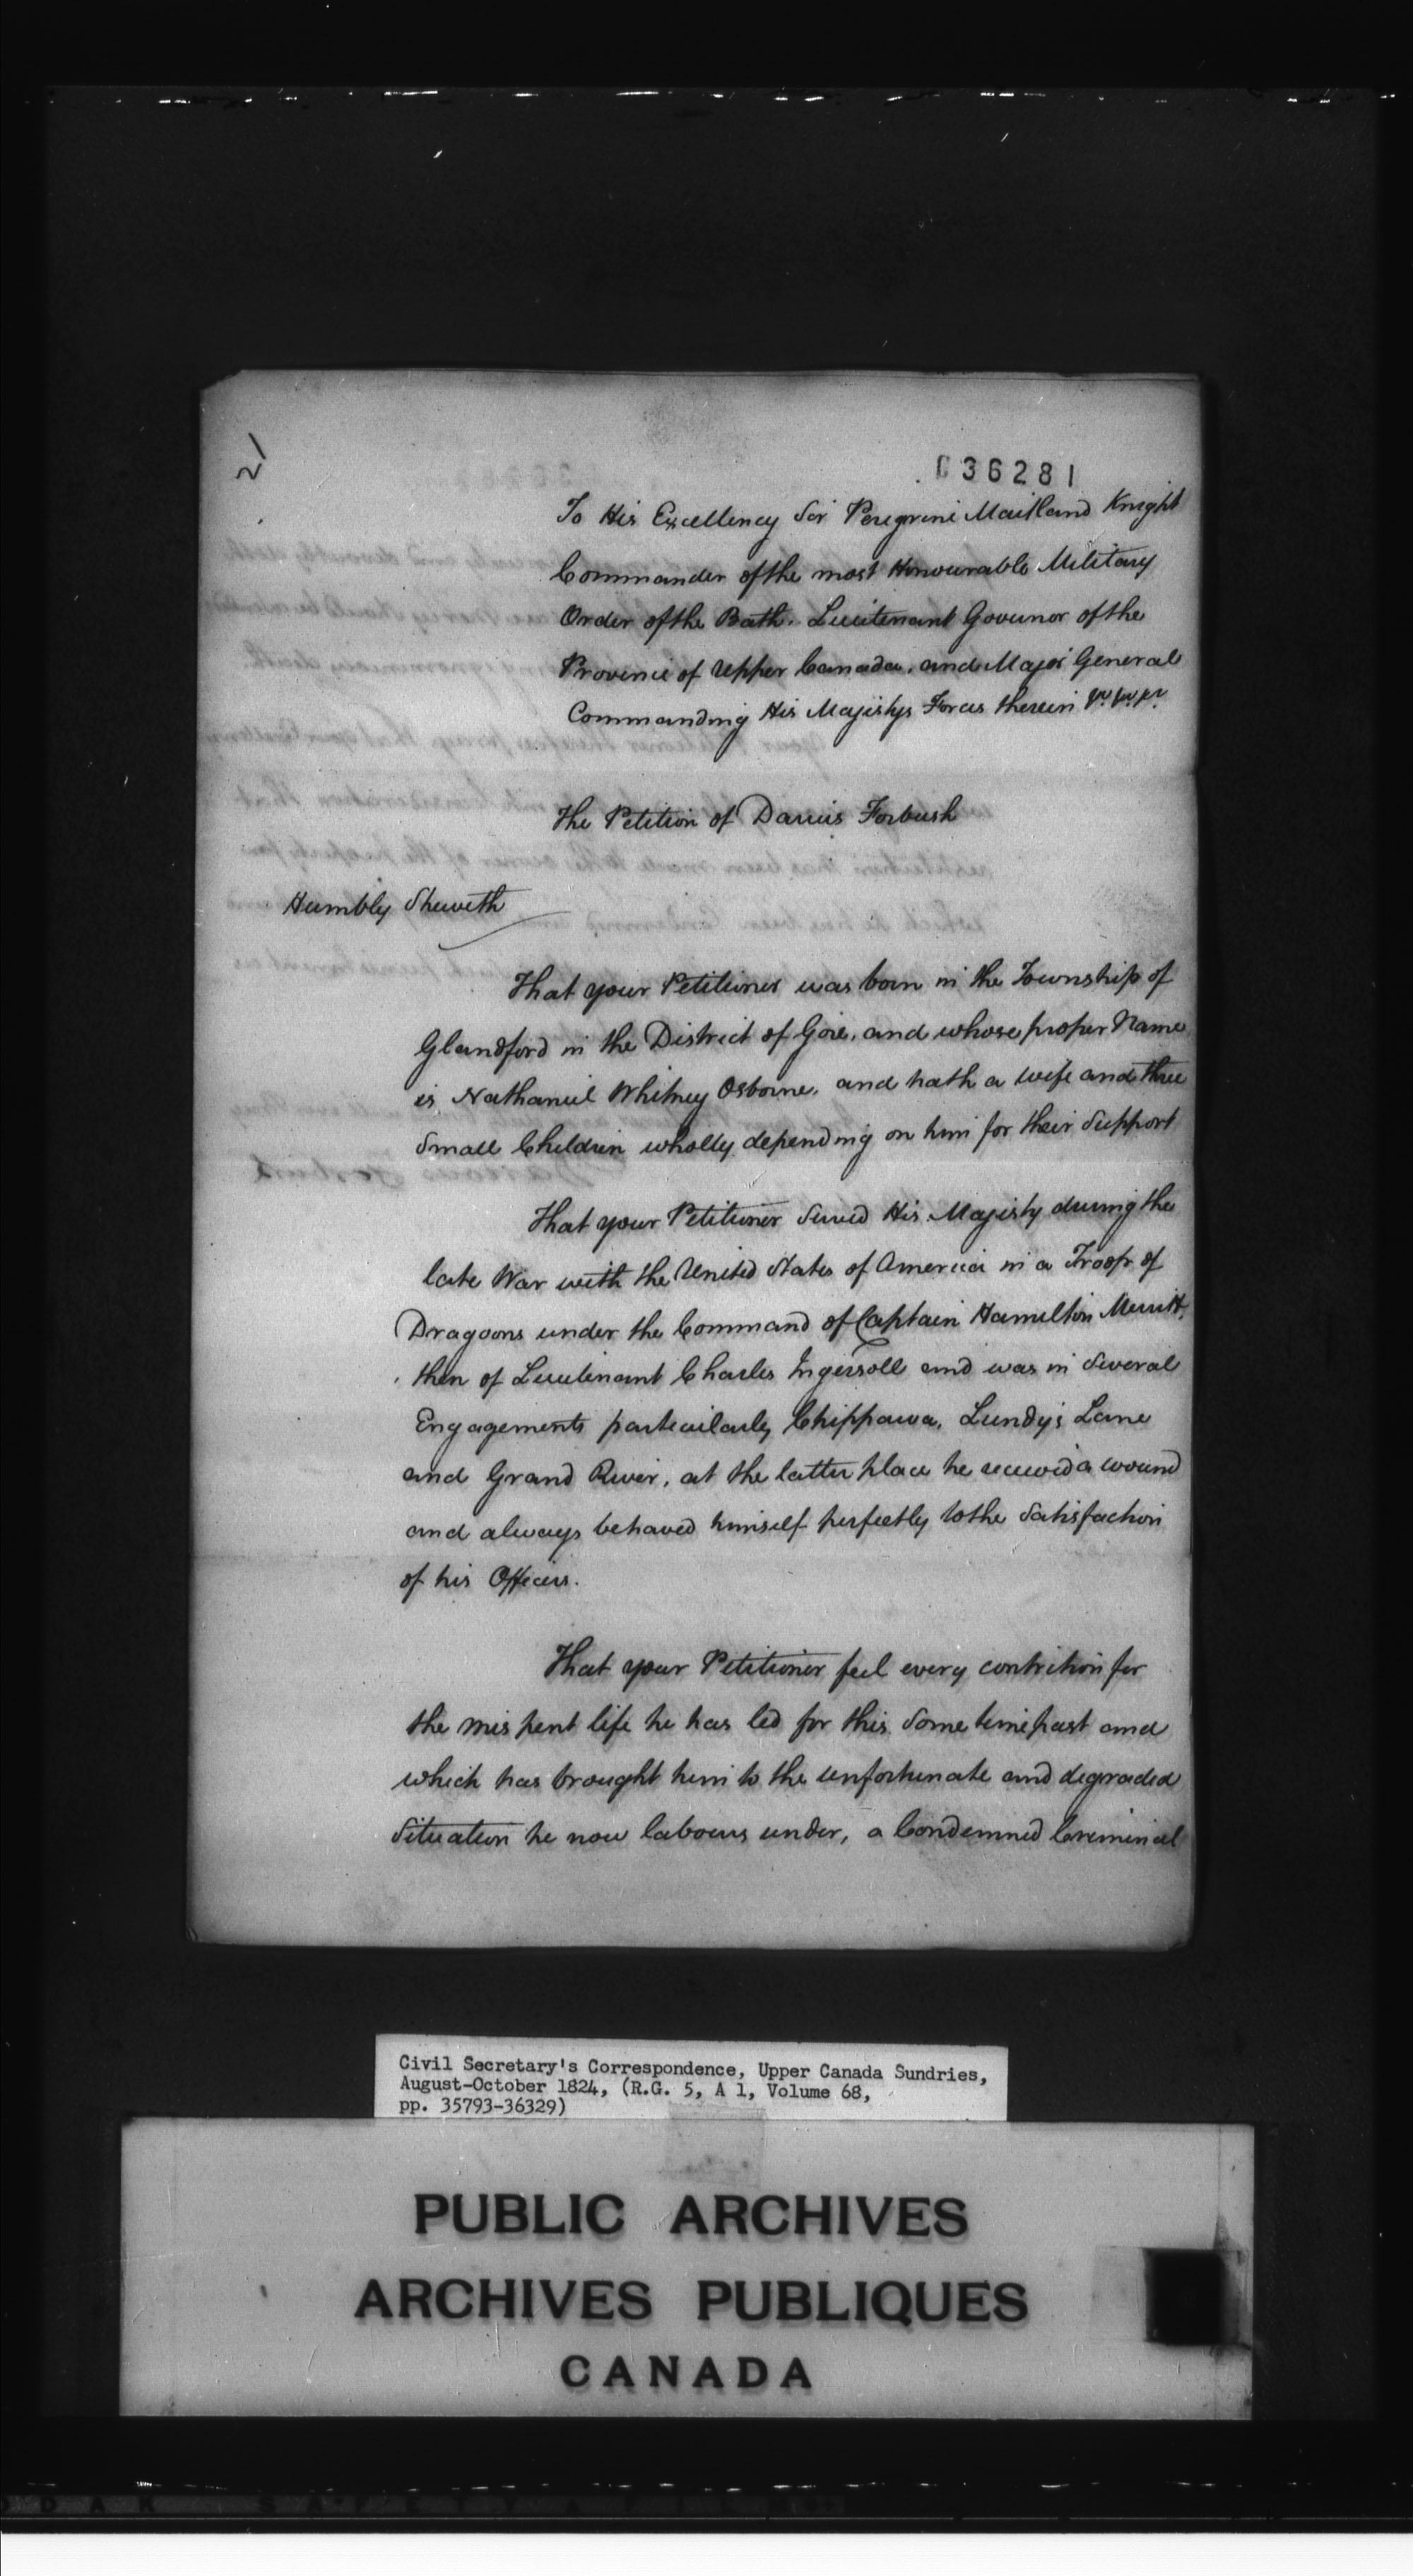 036281
To His Excellency Sir Peregrine Maitland Knight
Commander of the most Honourable Military
Order of the Bath. Lieutenant Governor of the
Province of Upper Canada, and Major General
Commanding His Majestys Forces therein &c. &c. &c.
The Petition of Darius Forbush
Humbly Sheweth
That your Petitioner was born in the Township of
Glandford in the District of Gore, and whose proper Name
is Nathaniel Whitney Osborne, and hath a wife and three
small Children wholly depending on him for their Support
That your Petitioner Served His Majesty during the
late War with the United States of America in a Troop of
Dragoons under the Command of Captain Hamilton Merritt,
then of Lieutenant Charles Ingersoll and was in Several
Engagements particularly Chippawa, Lundy's Lane
and Grand River, at the latter place he received a wound
and always behaved himself perfectly to the Satisfaction
of his Officers.
That your Petitioner feel every contrition for
the mispent life he has led for this some time past and
which has brought him to the unfortunate and degraded
Situation he now labours under, a Condemned Criminal
Civil Secretary's Correspondence, Upper Canada Sundries,
August-October 1824, (R.G. 5, A 1, Volume 68,
pp. 35793-36329)
PUBLIC ARCHIVES
ARCHIVES PUBLIQUES
CANADA